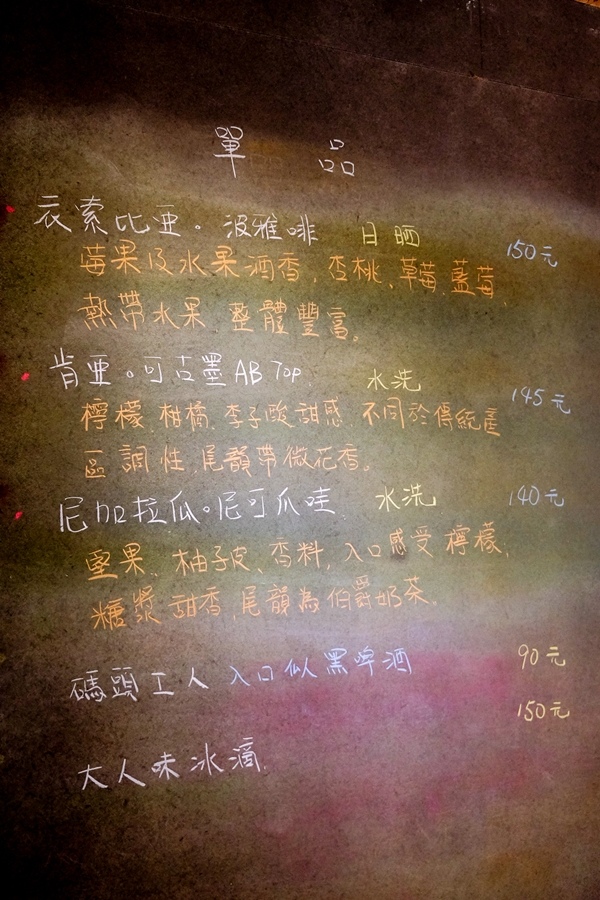 單品
衣索比亞。波雅啡 日晒 150元
莓果及水果酒香,杏桃、草莓、藍莓、
熱帶水果 整體豐富。
肯亞。可古墨 AB Top. 水洗 145元
檸檬、柑橘、李子酸甜感. 不同於傳統產
區調性,尾韻帶微花香。
尼加拉瓜。尼可爪哇 水洗 140元
堅果、柚子皮、香料,入口感受檸檬,
糖漿甜香,尾韻為伯爵奶茶。
碼頭工人 入口似黑啤酒 90元
150元
大人味冰滴.